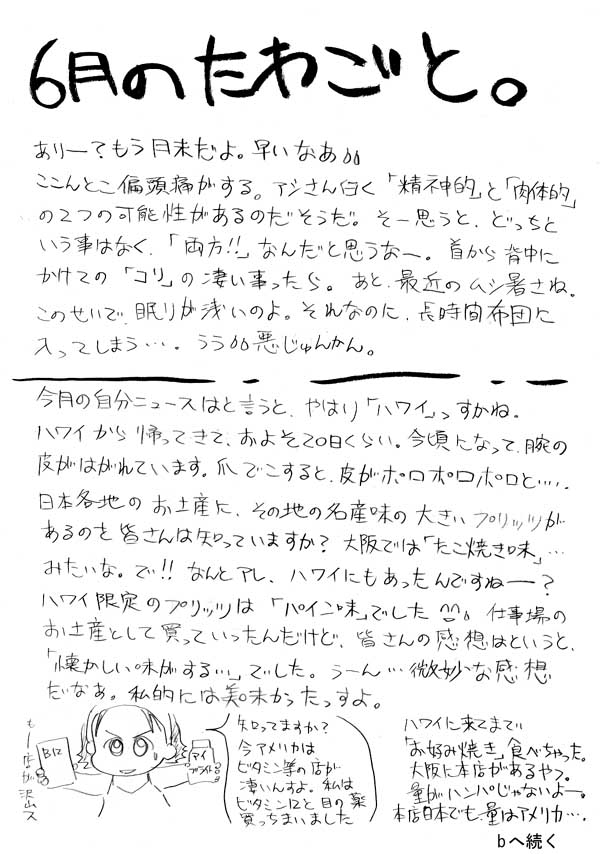 6月のたわごと。
ありー？もう月末だよ。早いなあ
ここんとこ偏頭痛がする。アシさん曰く「精神的」と「肉体的」
の2つの可能性があるのだそうだ。そー思うと、どっちと
いう事はなく、「両方!!」なんだと思うなー。首から背中に
かけての「コリ」の凄い事ったら。あと、最近のムシ暑さね。
このせいで、眠りが浅いのよ。それなのに、長時間布団に
入ってしまう…。うう悪じゅんかん。
今月の自分ニュースはと言うと、やはり「ハワイ」っすかね。
ハワイから帰ってきて、およそ20日くらい。今頃になって、腕の
皮がはがれています。爪でこすると、皮がポロポロポロと…。
日本各地のお土産に、その地の名産味の大きいプリッツが
あるのを皆さんは知っていますか？大阪では「たこ焼き味」…
みたいな。で!!なんとアレ、ハワイにもあったんですねー？
ハワイ限定のプリッツは「パイン味」でした 仕事場の
お土産として買っていったんだけど、皆さんの感想はというと、
「懐かしい味がする…」でした。うーん…微妙な感想
だなぁ。私的には美味かったっすよ。
もー店が沢山ス
B12
マイ
知ってますか？
今アメリカは
ビタミン等の店が
凄いんすよ。私は
ビタミン12と目の薬
買っちまいました
ハワイに来てまで
「お好み焼き」食べちゃった。
大阪に本店があるやつ。
量がハンパじゃないよー。
本店日本でも、量はアメリカ…。
bへ続く